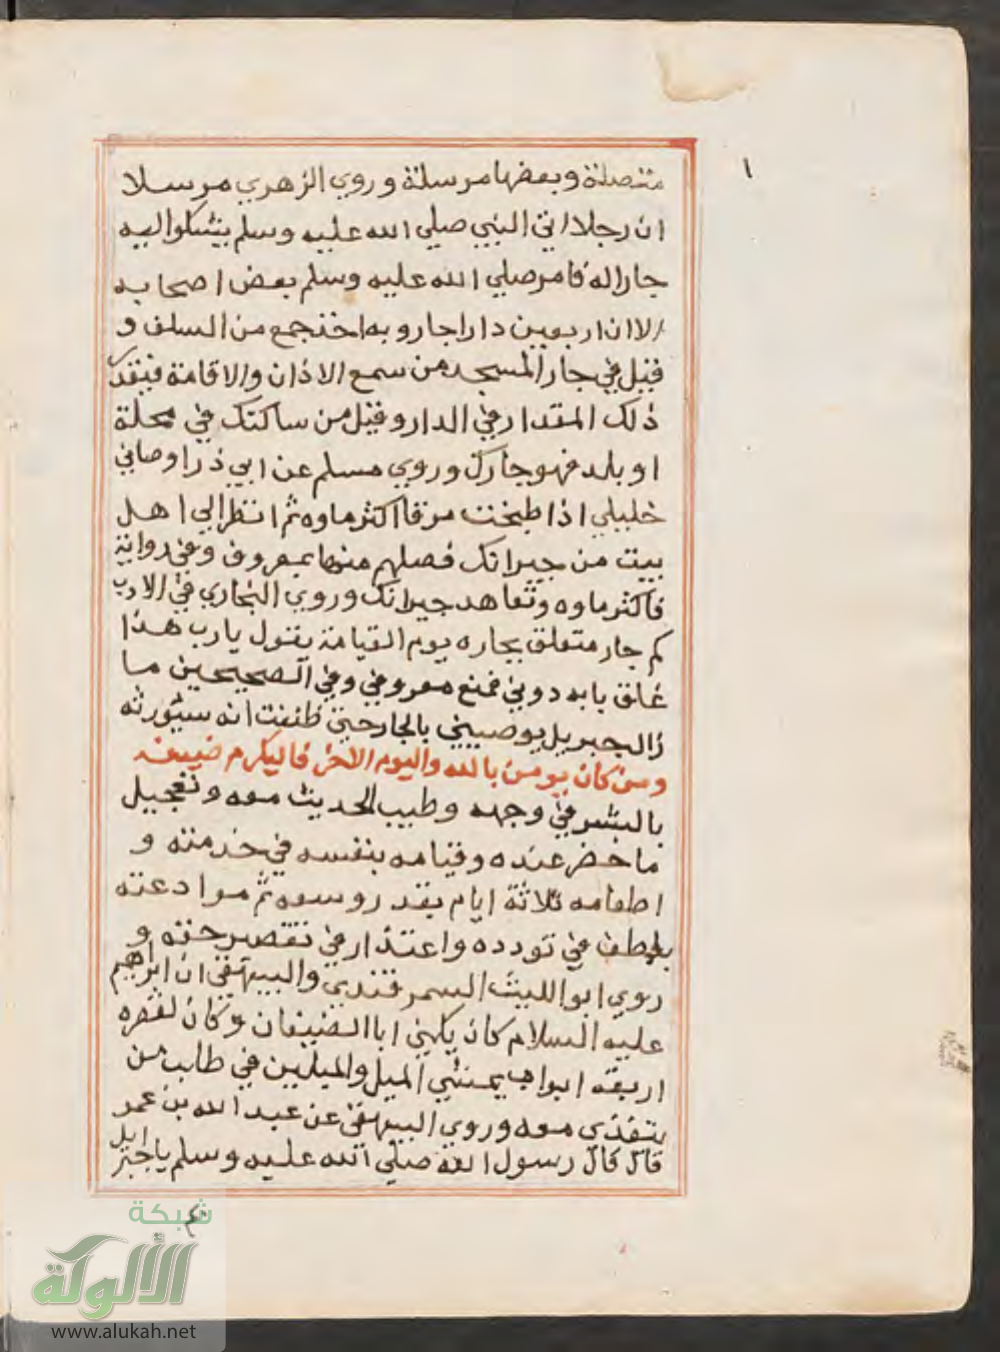 ١
متصلة وبعضها مرسلة وروي الزهري مرسلا
ان رجلا اتي النبي صلي الله عليه وسلم يشكوا اليه
جاراله فامر صلي الله عليه وسلم بعض اصحابه
الا ان اربعين دارا جار وبه اخذ جمع من السلف و
قيل في جار المسجد من سمع الاذان والاقامة فيقدر
ذلك المقدار في الدار وقيل من ساكنك في محلة
او بلد فهو جارك وروي مسلم عن ابي ذر اوصاني
خليلي اذا طبخت مرقا اكثر ماوه ثم انظر الي اهل
بيت من جيرانك فصلهم منها بمعروف وفي رواية
فاكثر ماوه وتعاهد جيرانك وروي البخاري في الادب
كم جار متعلق بجاره يوم القيامة يقول يا رب هذا
غلق بابه دوني فمنع معروفي وفي الصحيحين ما
زال جبريل يوصيني بالجار حتي ظننت انه سيورثه
ومن كان يومن بالله واليوم الاخر فاليكرم ضيفه
بالبشر في وجهه وطيب الحديث معه وتعجيل
ما حضر عنده وقيامه بنفسه في خدمته و
اطعامه ثلاثة ايام بقدر وسعه ثم موادعته
بلطف في تودده واعتذار في تقصير حقه و
روي ابو الليث السمرقندي والبيهقي ان ابراهيم
عليه السلام كان يكني ابا الضيفان وكان لقصره
اربعة ابواب يمشي الميل والميلين في طلب من
يتغذي معه وروي البيهقي عن عبد الله بن عمر
قال قال رسول الله صلي الله عليه وسلم يا جبرايل
شبكة
الألوكة
www.alukah.net